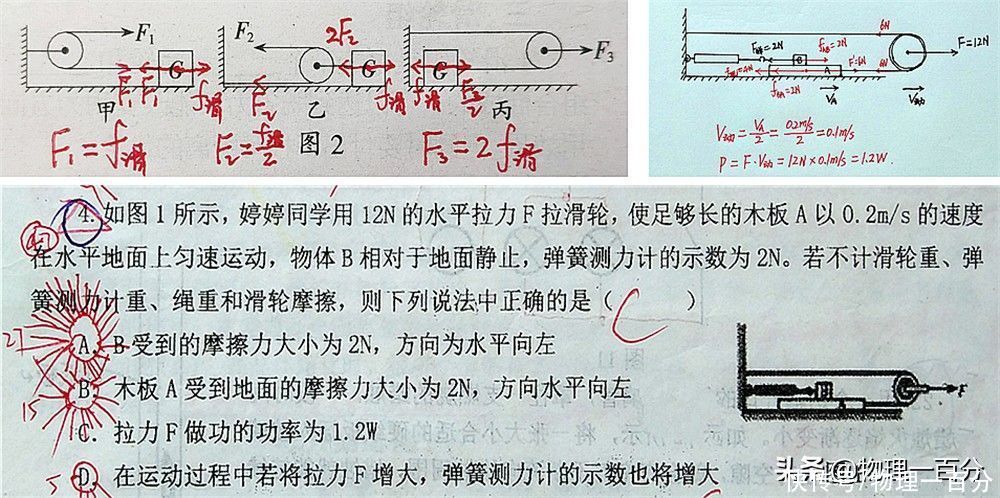 F₁ F₂ 2F₂ F₃
G G G
F₁ F₁ f滑 F₂ f滑 f滑 F₃/2
甲 乙 丙
图2
F₁=f滑 F₂=f滑/2 F₃=2f滑
6N F=12N
f_AB=2N
B
A F'=6N 6N
f_BA=2N
V_A
V动=V_A/2=0.2m/s/2=0.1m/s
P=F·V动=12N×0.1m/s=1.2W.
4.如图1所示,婷婷同学用12N的水平拉力F拉滑轮,使足够长的木板A以0.2m/s的速度
在水平地面上匀速运动,物体B相对于地面静止,弹簧测力计的示数为2N。若不计滑轮重、弹
簧测力计重、绳重和滑轮摩擦,则下列说法中正确的是( C )
27
A、B受到的摩擦力大小为2N,方向为水平向左
B、木板A受到地面的摩擦力大小为2N,方向水平向左
15
C.拉力F做功的功率为1.2W
5
D、在运动过程中若将拉力F增大,弹簧测力计的示数也将增大
B
A
F
头条@物理一百分
快传号/物理一百分